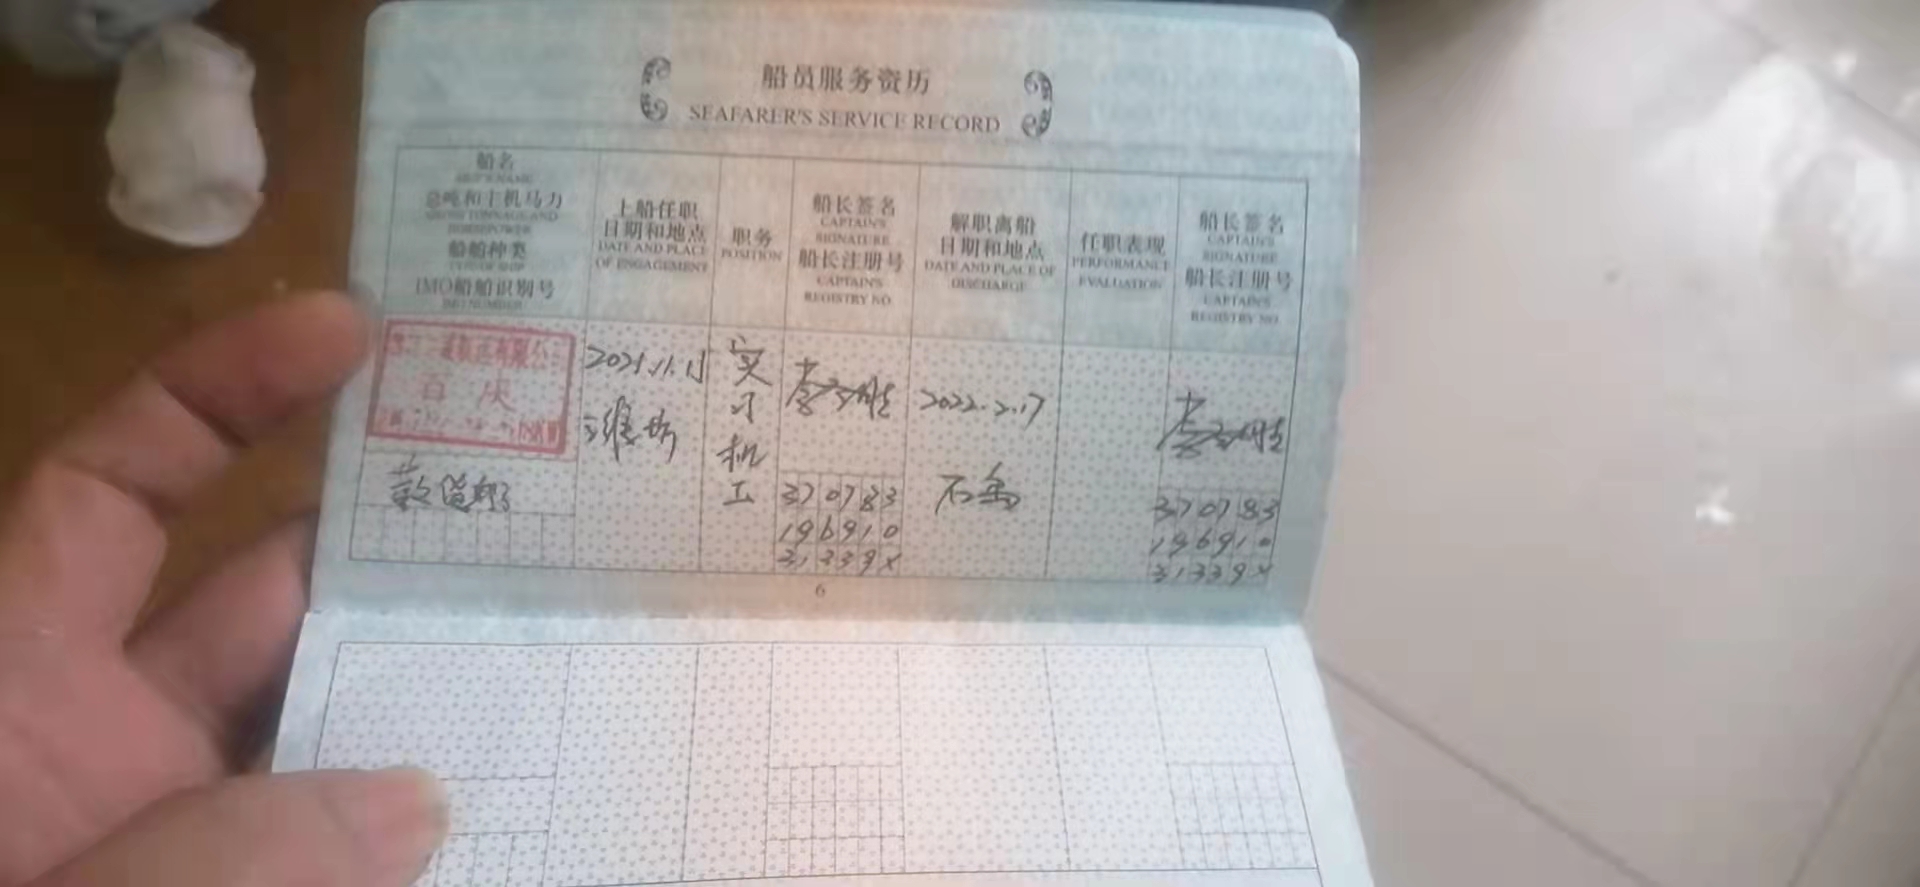 船员服务资历
SEAFARER'S SERVICE RECORD
船名
SHIP'S NAME
总吨和主机马力
GROSS TONNAGE AND
HORSEPOWER
船舶种类
TYPE OF SHIP
IMO船舶识别号
IMO NUMBER
上船任职
日期和地点
DATE AND PLACE
OF ENGAGEMENT
职务
POSITION
船长签名
CAPTAIN'S
SIGNATURE
船长注册号
CAPTAIN'S
REGISTRY NO.
解职离船
日期和地点
DATE AND PLACE OF
DISCHARGE
任职表现
PERFORMANCE
EVALUATION
船长签名
CAPTAIN'S
SIGNATURE
船长注册号
CAPTAIN'S
REGISTRY NO.
有限公
百庆
散货船
潍坊
实
习
机
工
370783
196910
2022.2.17
石岛
370783
196910
31339X
6